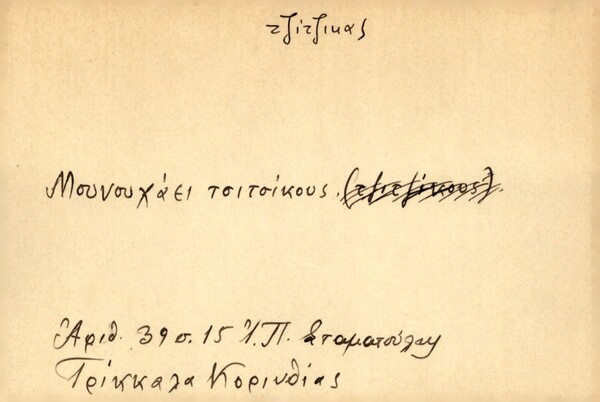 τζίτζικας
Μουνουχάει τσιτσίκους. (τζιτζίκους).
Ἀριθ. 39 σ. 15 Ἰ. Π. Σταματούλη
Τρίκκαλα Κορινθίας